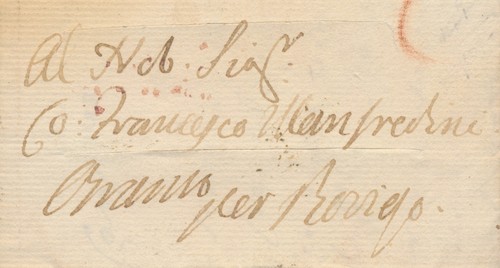 Al Nob: Sigr.
Co: Francesco Manfredini
per Rovigo.